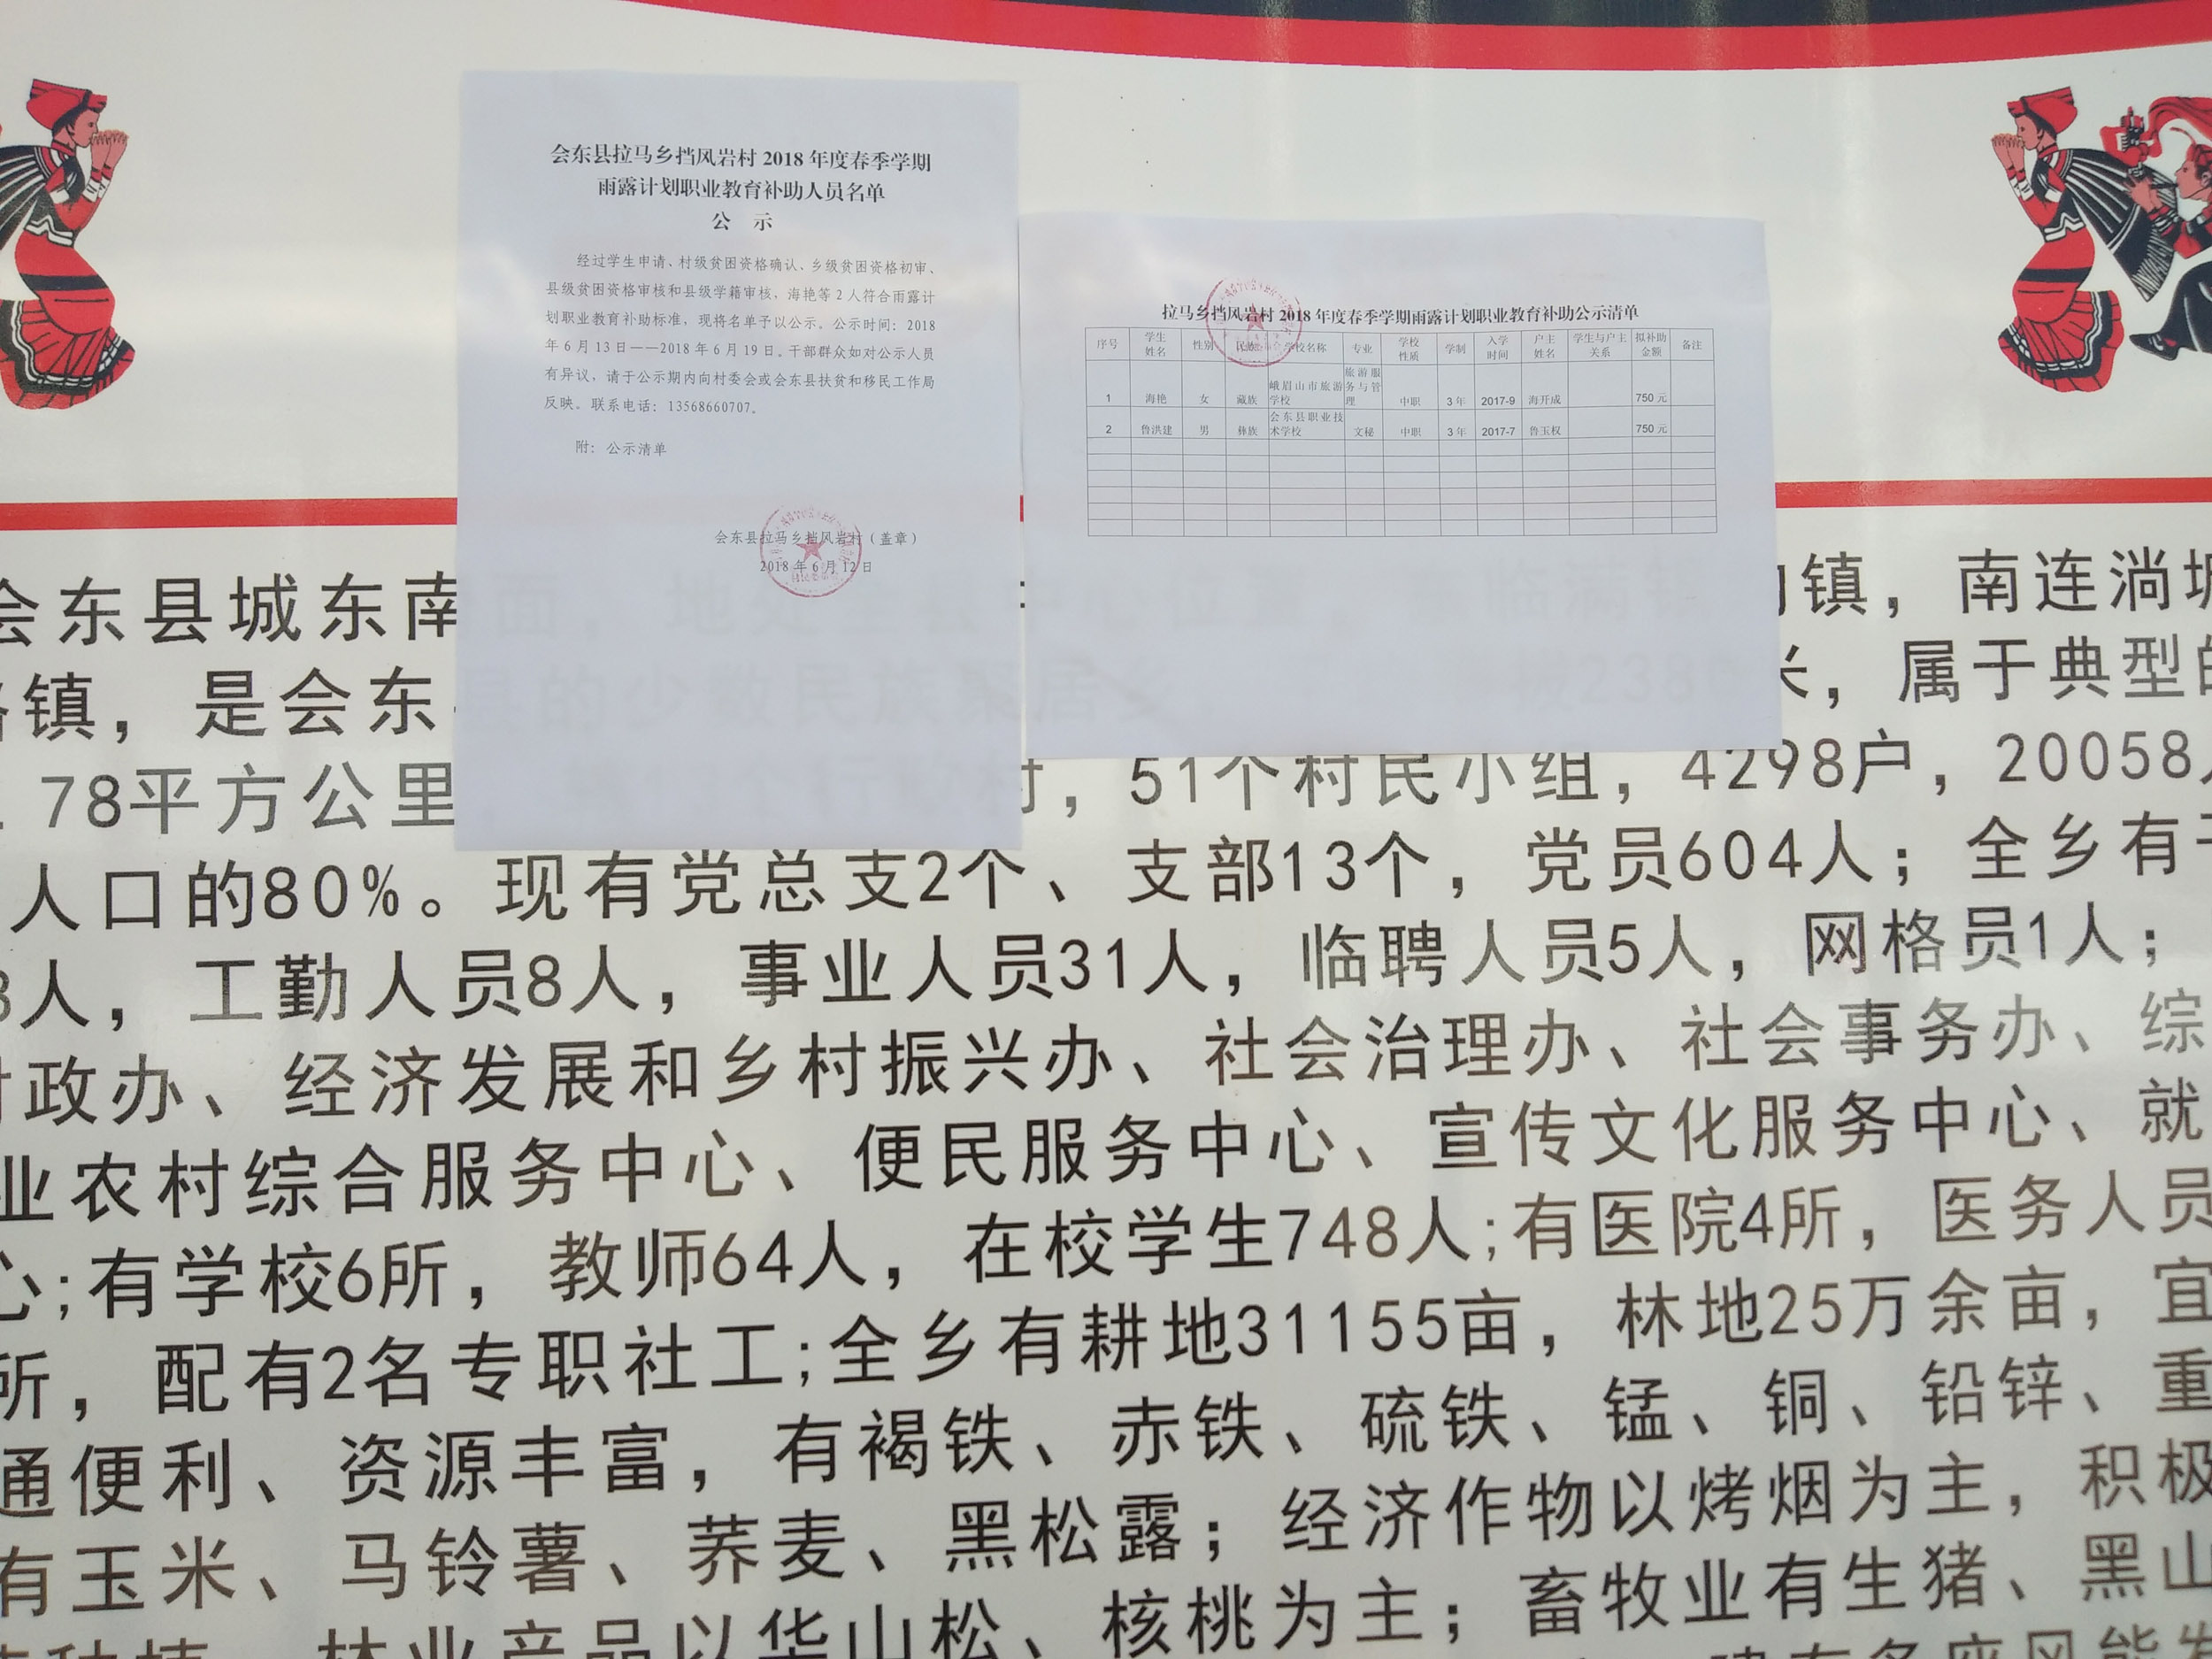 会东县拉马乡挡风岩村2018年度春季学期
雨露计划职业教育补助人员名单
公 示
经过学生申请、村级贫困资格确认、乡级贫困资格初审、
县级贫困资格审核和县级学籍审核，海艳等2人符合雨露计
划职业教育补助标准，现将名单予以公示。公示时间：2018
年6月13日——2018年6月19日。干部群众如对公示人员
有异议，请于公示期内向村委会或会东县扶贫和移民工作局
反映。联系电话：13568660707。
附：公示清单
会东县拉马乡挡风岩村（盖章）
2018年6月12日
拉马乡挡风岩村2018年度春季学期雨露计划职业教育补助公示清单
序号 学生姓名 性别 民族 学校名称 专业 学校性质 学制 入学时间 户主姓名 学生与户主关系 拟补助金额 备注
1 海艳 女 藏族 峨眉山市旅游学校 旅游服务与管理 中职 3年 2017-9 海开成 750元
2 鲁洪建 男 彝族 会东县职业技术学校 文秘 中职 3年 2017-7 鲁玉权 750元
会东县城东南面，地处 中心位置， 临满银沟镇，南连淌塘
镇，是会东县的少数民族聚居乡， 拔238 米，属于典型的
78平方公里， 村，51个村民小组，4298户，20058
人口的80%。现有党总支2个、支部13个，党员604人；全乡有干
3人，工勤人员8人，事业人员31人，临聘人员5人，网格员1人；
财政办、经济发展和乡村振兴办、社会治理办、社会事务办、综
业农村综合服务中心、便民服务中心、宣传文化服务中心、就
心;有学校6所，教师64人，在校学生748人;有医院4所，医务人员
所，配有2名专职社工;全乡有耕地31155亩，林地25万余亩，宜
通便利、资源丰富，有褐铁、赤铁、硫铁、锰、铜、铅锌、重
有玉米、马铃薯、荞麦、黑松露；经济作物以烤烟为主，积极
种植，林业产品以华山松、核桃为主；畜牧业有生猪、黑山
建有多座风能发